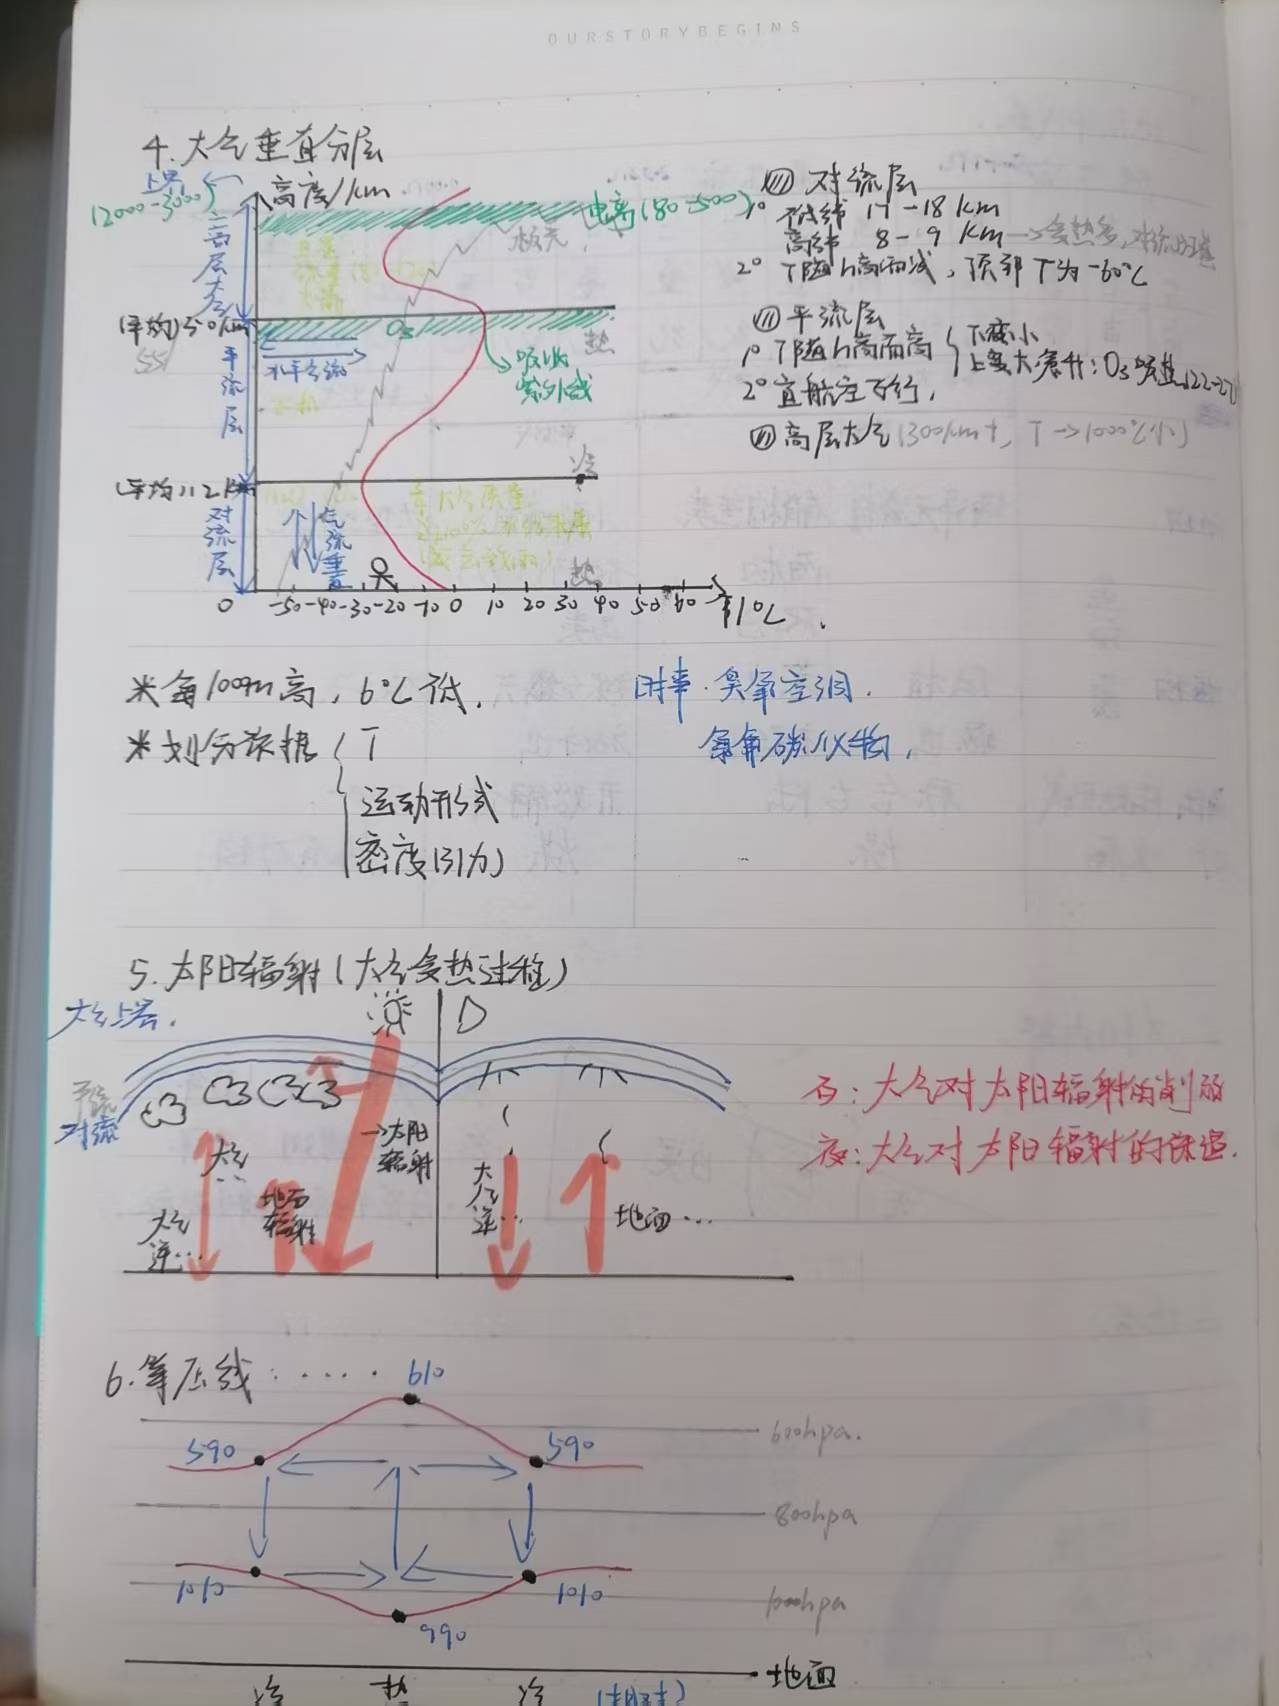 OURSTORYBEGINS
4.大气垂直分层
上界
(2000-3000)
高度/km
电离(80-500)
高层大气
(平均)50km
55
O₃
热
吸收
紫外线
水平气流
平流层
冷
(平均)12km
对流层
气流垂直
热
0 -50 -40 -30 -20 -10 0 10 20 30 40 50 60 T/℃
(1) 对流层
1° 低纬 17-18 km
高纬 8-9 km → 受热多,对流旺盛
2° T随h高而减,顶部T为-60℃
(2) 平流层
1° T随h高而高 { 下变小
上变大
2° 宜航空飞行,
(3) 高层大气(300km+, T→1000℃
*每1000m高,6℃低.
*划分依据 { T
运动形式
密度(引力)
时事·臭氧空洞.
氟氯碳化物,
5.太阳辐射(大气受热过程)
大气上界.
平流
对流
→太阳
辐射
大气
地面
辐射
大气
逆…
大气逆…
地面…
白:大气对太阳辐射的削弱
夜:大气对太阳辐射的保温.
6.等压线······
610
600hpa.
590 590
800hpa
1010 1010
1000hpa
990
地面
冷 热 冷